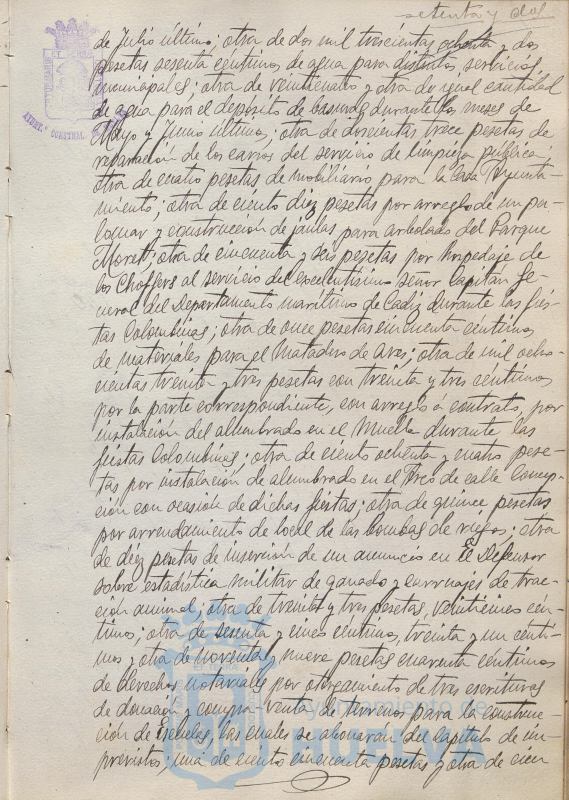 setenta y dos
de Julio último; otra de dos mil trescientas ochenta y dos
pesetas sesenta céntimos de agua para distintos servicios
municipales; otra de veintienado y otra de igual cantidad
de agua para el depósito de basuras durante los meses de
Mayo y Junio último; otra de doscientas trece pesetas de
reparación de los carros del servicio de limpieza pública;
otra de cuatro pesetas de mobiliario para la Casa Ayunta-
miento; otra de ciento diez pesetas por arreglo de un pa-
lomar y construcción de jaulas para arbolado del Parque
Moret; otra de cincuenta y seis pesetas por hospedaje de
los Chóffers al servicio del excelentísimo señor Capitán Ge-
neral del Departamento marítimo de Cádiz durante las fies-
tas Colombinas; otra de once pesetas cincuenta céntimos
de materiales para el Matadero de Aves; otra de mil ocho-
cientas treinta y tres pesetas con treinta y tres céntimos
por la parte correspondiente, con arreglo a contrato, por
instalación del alumbrado en el Muelle durante las
fiestas Colombinas; otra de ciento ochenta y cuatro pese-
tas por instalación de alumbrado en el Arco de calle Concep-
ción con ocasión de dichas fiestas; otra de quince pesetas
por arrendamiento de local de las bombas de riegos; otra
de diez pesetas de inserción de un anuncio en El Defensor
sobre estadística militar de ganado y carruajes de trac-
ción animal; otra de treinta y tres pesetas, veinticinco cén-
timos; otra de sesenta y cinco céntimos, treinta y un cénti-
mos y otra de noventa y nueve pesetas cuarenta céntimos
de derechos notariales por otorgamiento de tres escrituras
de donación y compra-venta de terrenos para la construc-
ción de Escuelas, las cuales se abonarán del capítulo de im-
previstos; una de ciento cincuenta pesetas y otra de cien
Ayuntamiento de
HUELVA